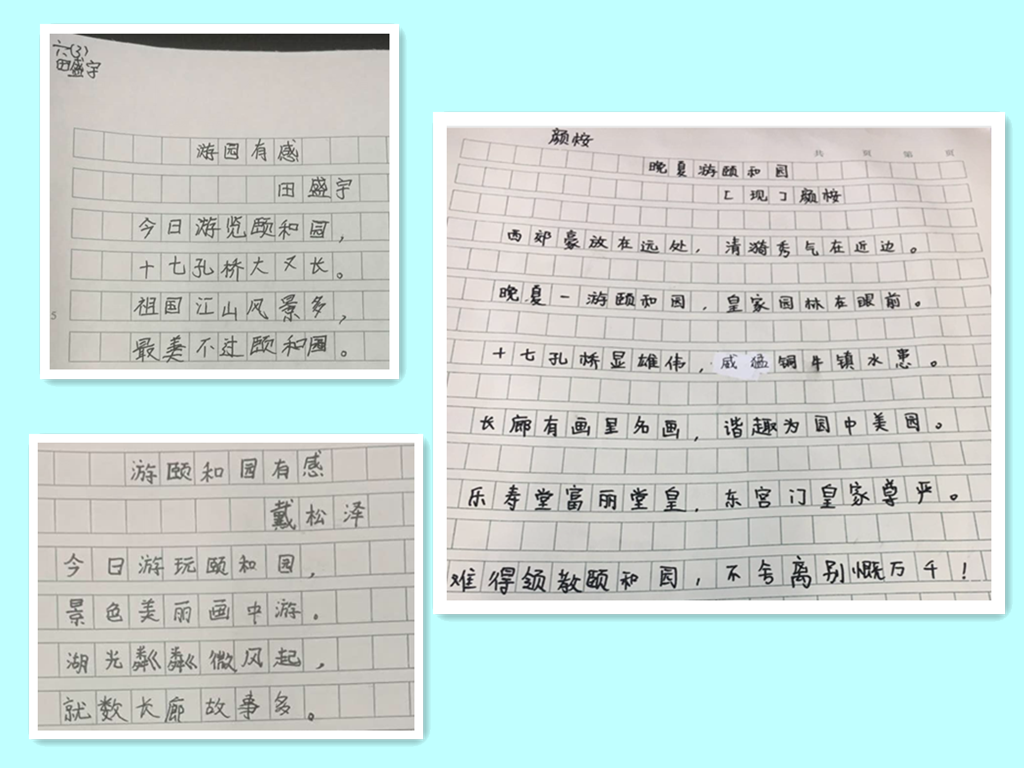 六(3)
田盛宇
游园有感
田盛宇
今日游览颐和园，
十七孔桥大又长。
祖国江山风景多，
最美不过颐和园。
游颐和园有感
戴松泽
今日游玩颐和园，
景色美丽画中游。
湖光粼粼微风起，
就数长廊故事多。
颜桉
共 页 第 页
晚夏游颐和园
[现]颜桉
西郊豪放在远处，清漪秀气在近边。
晚夏一游颐和园，皇家园林在眼前。
十七孔桥显雄伟，威猛铜牛镇水患。
长廊有画呈名画，谐趣为园中美园。
乐寿堂富丽堂皇，东宫门皇家尊严。
难得领教颐和园，不舍离别慨万千！